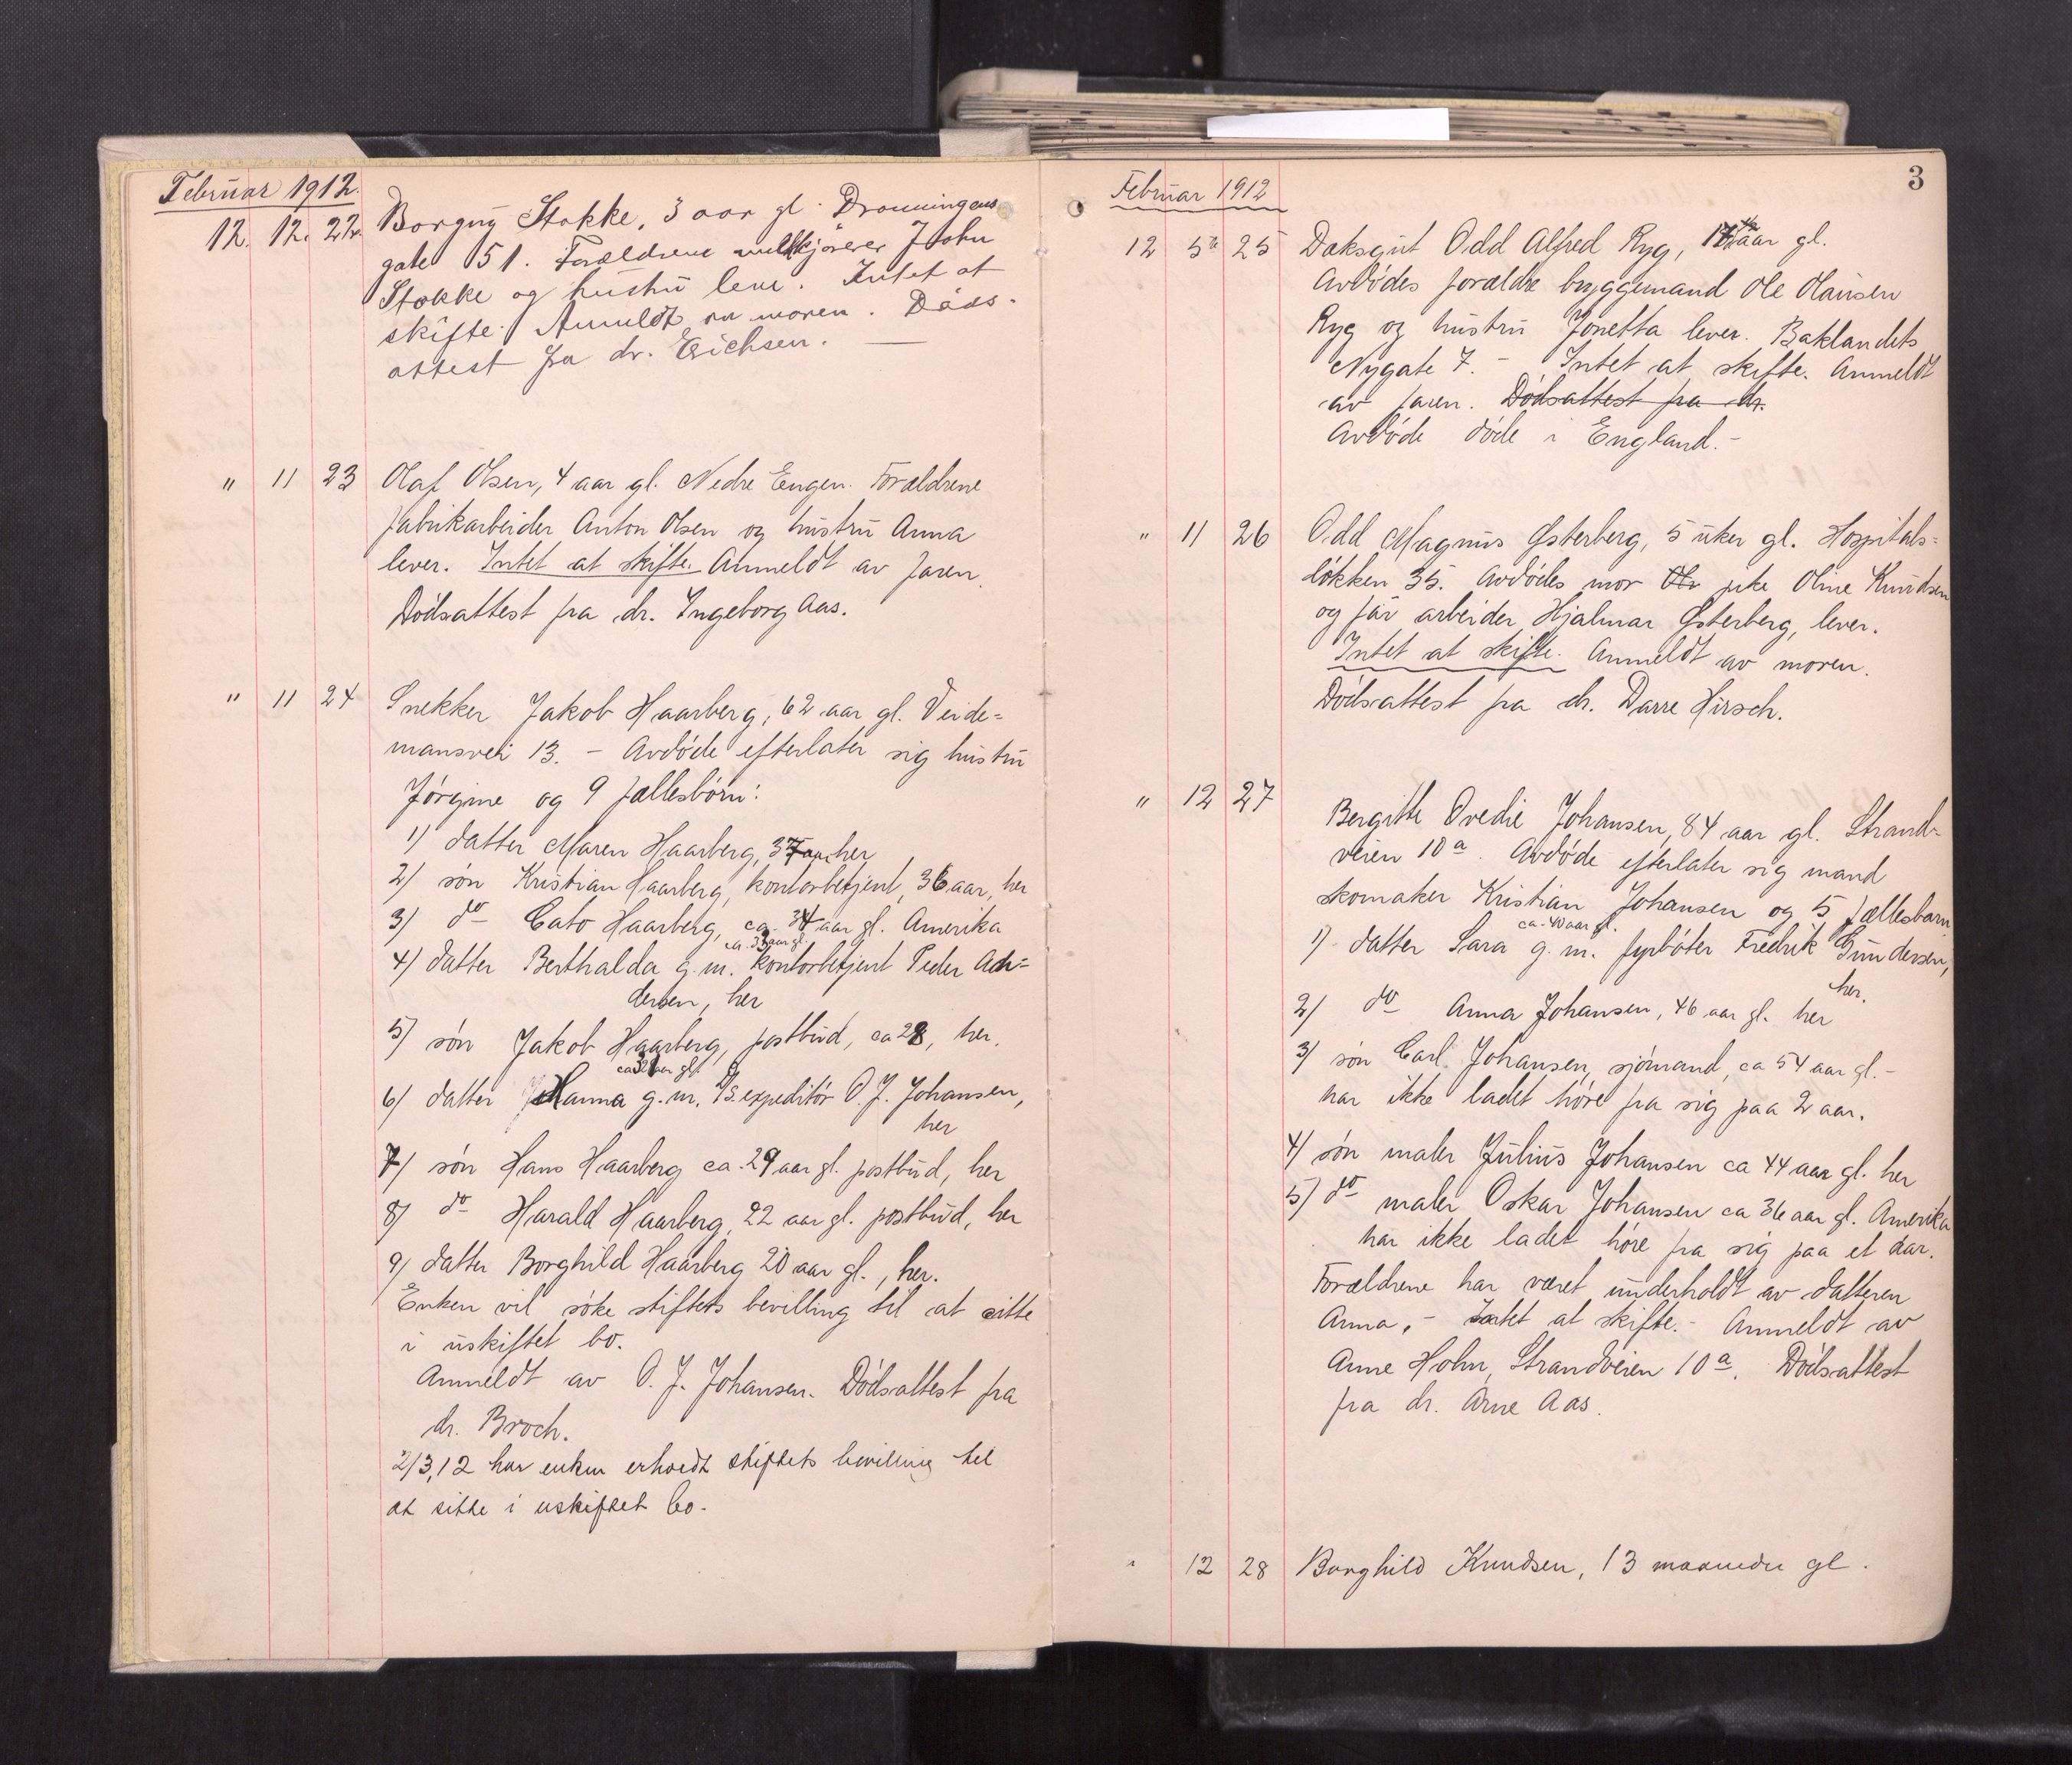 Februar 1912.
12. 12. 22. Borgny Stokke, 3 aar gl. Dronningens
gate 51. Forældrene melkkjører John
Stokke og hustru lever. Intet at
skifte. Anmeldt av moren. Døds-
attest fra dr. Erichsen. —
" 11 23 Olaf Olsen, 4 aar gl. Nedre Engen. Forældrene
fabrikarbeider Anton Olsen og hustru Anna
lever. Intet at skifte. Anmeldt av faren.
Dødsattest fra dr. Ingeborg Aas.
" 11 24 Snekker Jakob Haarberg, 62 aar gl. Veide=
mansvei 13. - Avdøde efterlater sig hustru
Jørgine og 9 fællesbørn:
1) datter Maren Haarberg, 37 aar her
2) søn Kristian Haarberg, kontorbetjent, 36 aar, her
3) do Cato Haarberg, ca. 34 aar gl. Amerika
ca. 33 aar gl.
4) datter Berthalda g. m. kontorbetjent Peder An=
dersen, her
5) søn Jakob Haarberg, postbud, ca 28, her.
ca 31 aar gl.
6) datter Hanna g. m. expeditør O. J. Johansen,
her
7) søn Hans Haarberg ca. 29 aar gl. postbud, her
8) do Harald Haarberg, 22 aar gl. postbud, her
9) datter Borghild Haarberg 20 aar gl., her.
Enken vil søke stiftets bevilling til at sitte
i uskiftet bo.
Anmeldt av O. J. Johansen. Dødsattest fra
dr. Broch.
2/3,12 har enken erholdt stiftets bevilling til
at sitte i uskiftet bo.
3
Februar 1912
12 5/2 25 Daksgut Odd Alfred Ryg, 17 aar gl.
Avdødes forældre bryggemand Ole Hansen
Ryg og hustru Jonetta lever. Baklandets
Nygate 7. - Intet at skifte. Anmeldt
av faren. Dødsattest fra dr.
Avdøde døde i England. -
" 11 26 Odd Magnus Østerberg, 5 uker gl. Hospitals=
løkken 35. Avdødes mor pike Oline Knudsen
og far arbeider Hjalmar Østerberg, lever.
Intet at skifte. Anmeldt av moren.
Dødsattest fra dr. Darre Hirsch.
" 12 27 Bergitte Ovedie Johansen, 84 aar gl. Strand-
veien 10a. Avdøde efterlater sig mand
skomaker Kristian Johansen og 5 fællesbarn
ca. 40 aar gl.
1) datter Sara g. m. fyrbøter Fredrik Gundersen,
her.
2) do Anna Johansen, 46 aar gl. her
3) søn Carl Johansen, sjømand, ca 54 aar gl. -
har ikke ladet høre fra sig paa 2 aar.
4) søn maler Julius Johansen ca 44 aar gl. her
5) do maler Oskar Johansen ca 36 aar gl. Amerika
har ikke ladet høre fra sig paa et aar.
Forældrene har været underholdt av datteren
Anna. - Intet at skifte. - Anmeldt av
Anne Holm, Strandveien 10a. Dødsattest
fra dr. Arne Aas.
" 12 28 Borghild Knudsen, 13 maaneder gl.